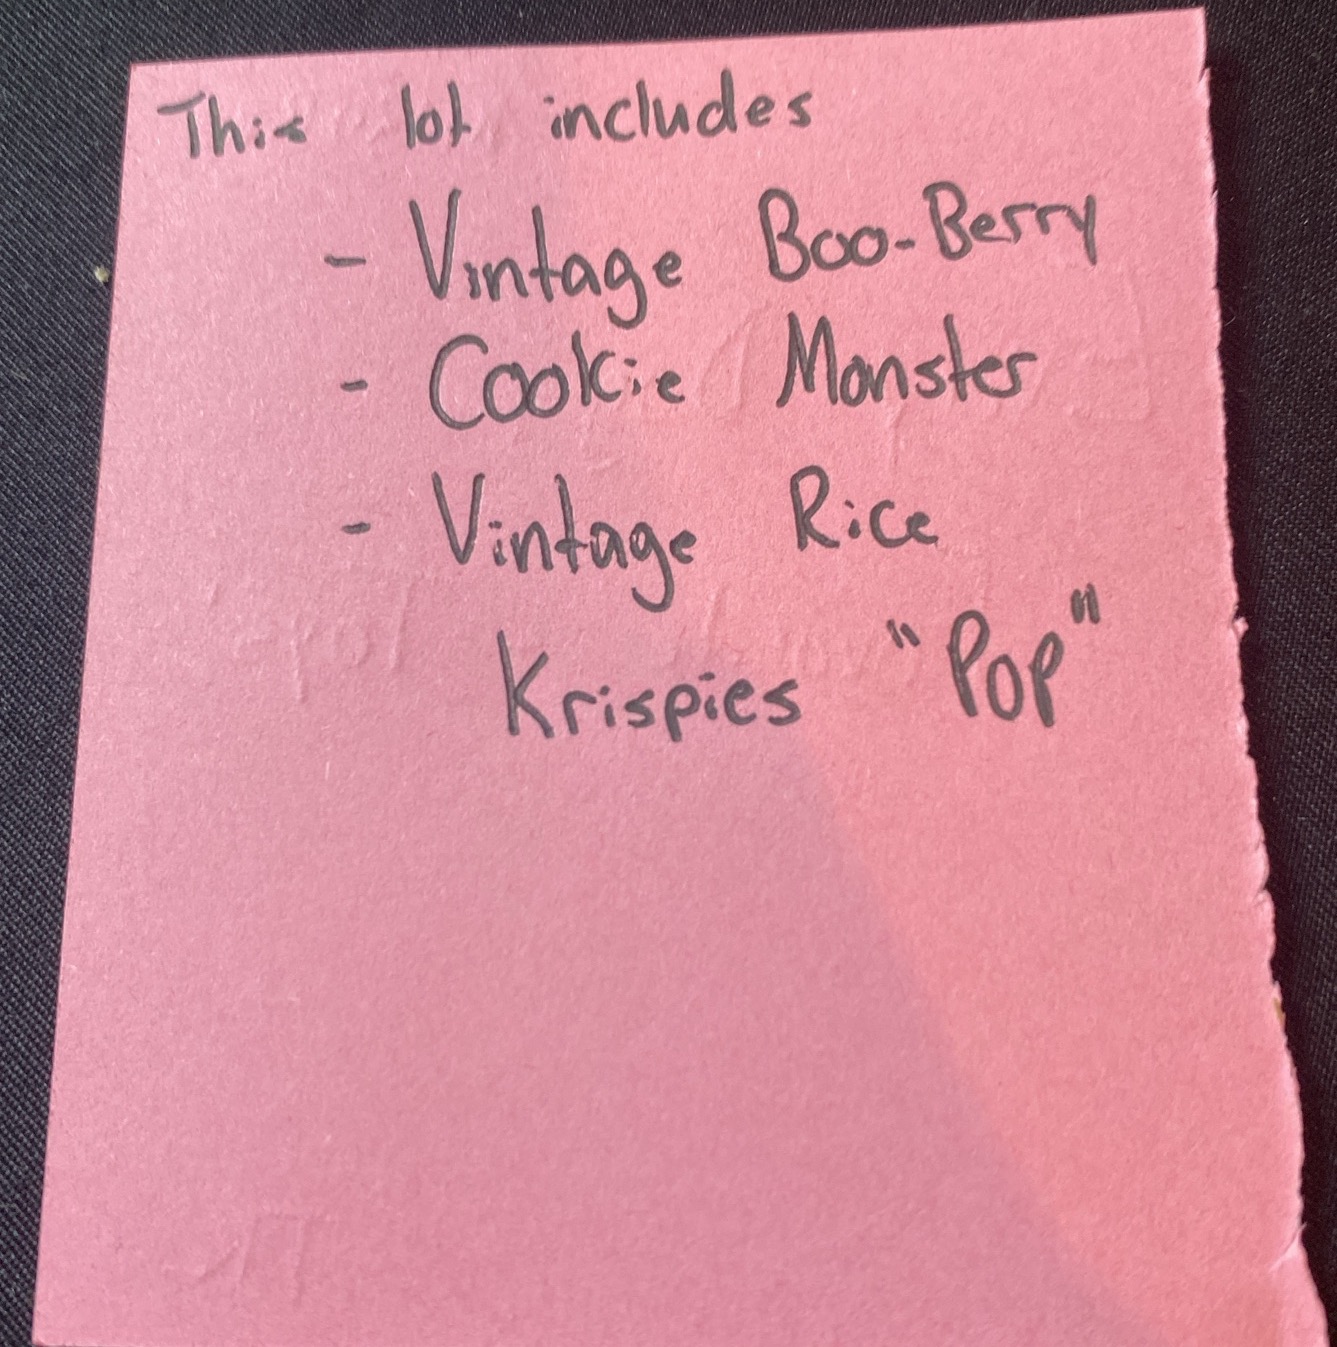 This lot includes
- Vintage Boo-Berry
- Cookie Monster
- Vintage Rice
Krispies "Pop"